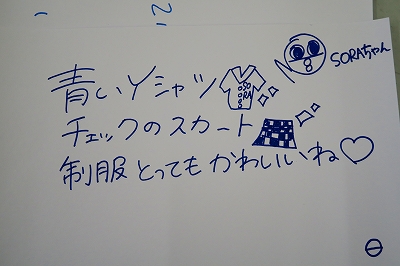 SORAちゃん
青いYシャツ
SORA
チェックのスカート
制服とってもかわいいね♡